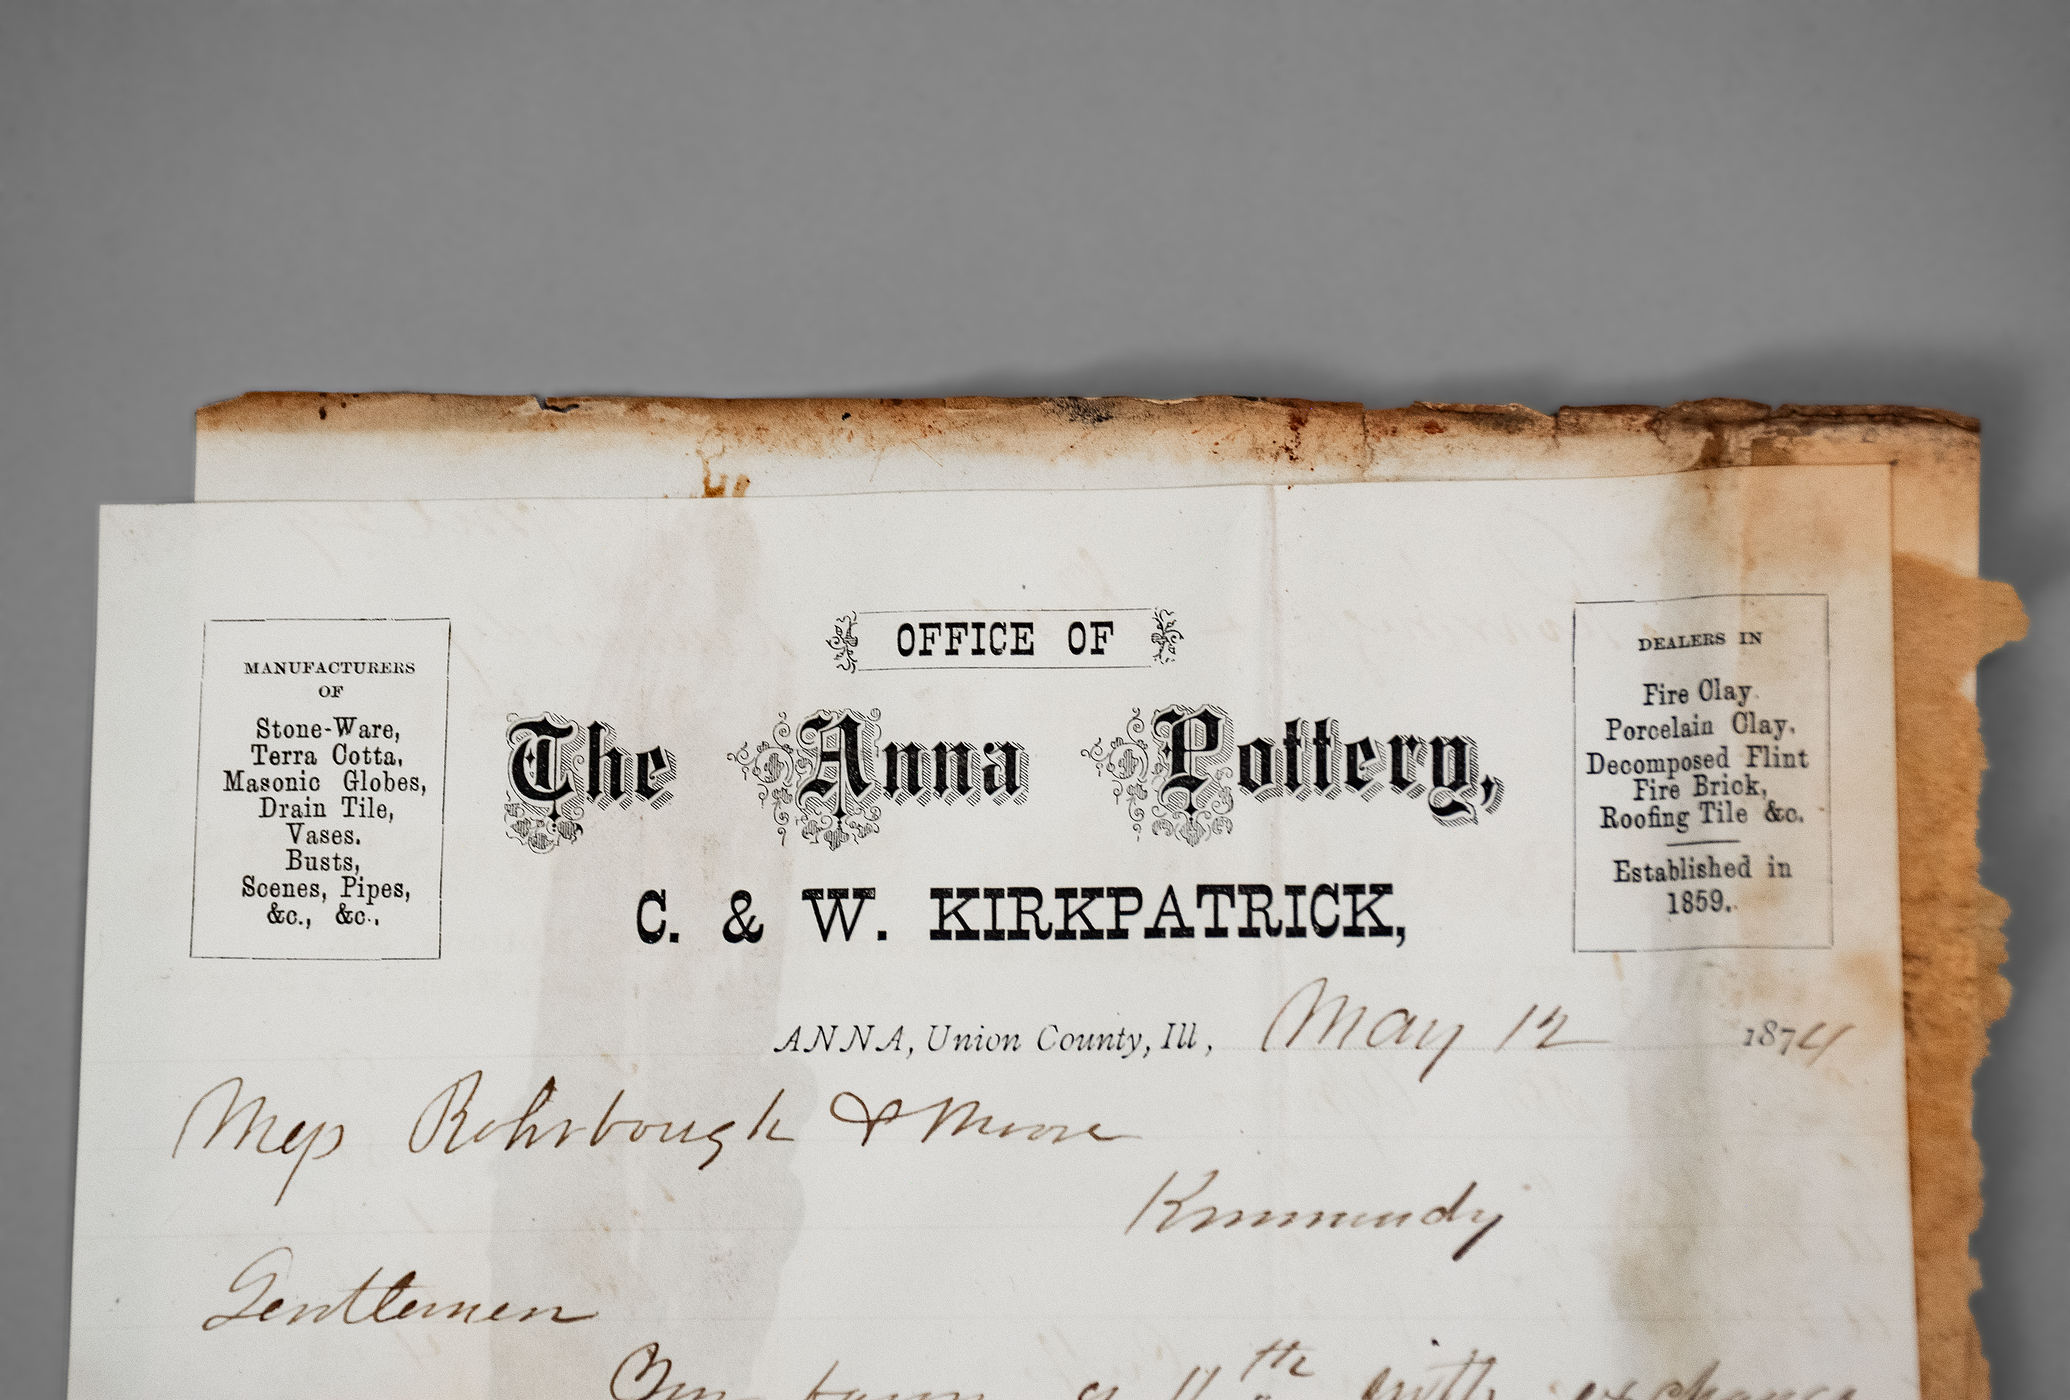 OFFICE OF
The Anna Pottery,
C. & W. KIRKPATRICK,
MANUFACTURERS
OF
Stone-Ware,
Terra Cotta,
Masonic Globes,
Drain Tile,
Vases.
Busts,
Scenes, Pipes,
&c., &c.,
DEALERS IN
Fire Clay
Porcelain Clay.
Decomposed Flint
Fire Brick,
Roofing Tile &c.
Established in
1859.
ANNA, Union County, Ill, May 12 1874
Rohrbough & Moore
Kinmundy
Gentlemen
11th with exchange